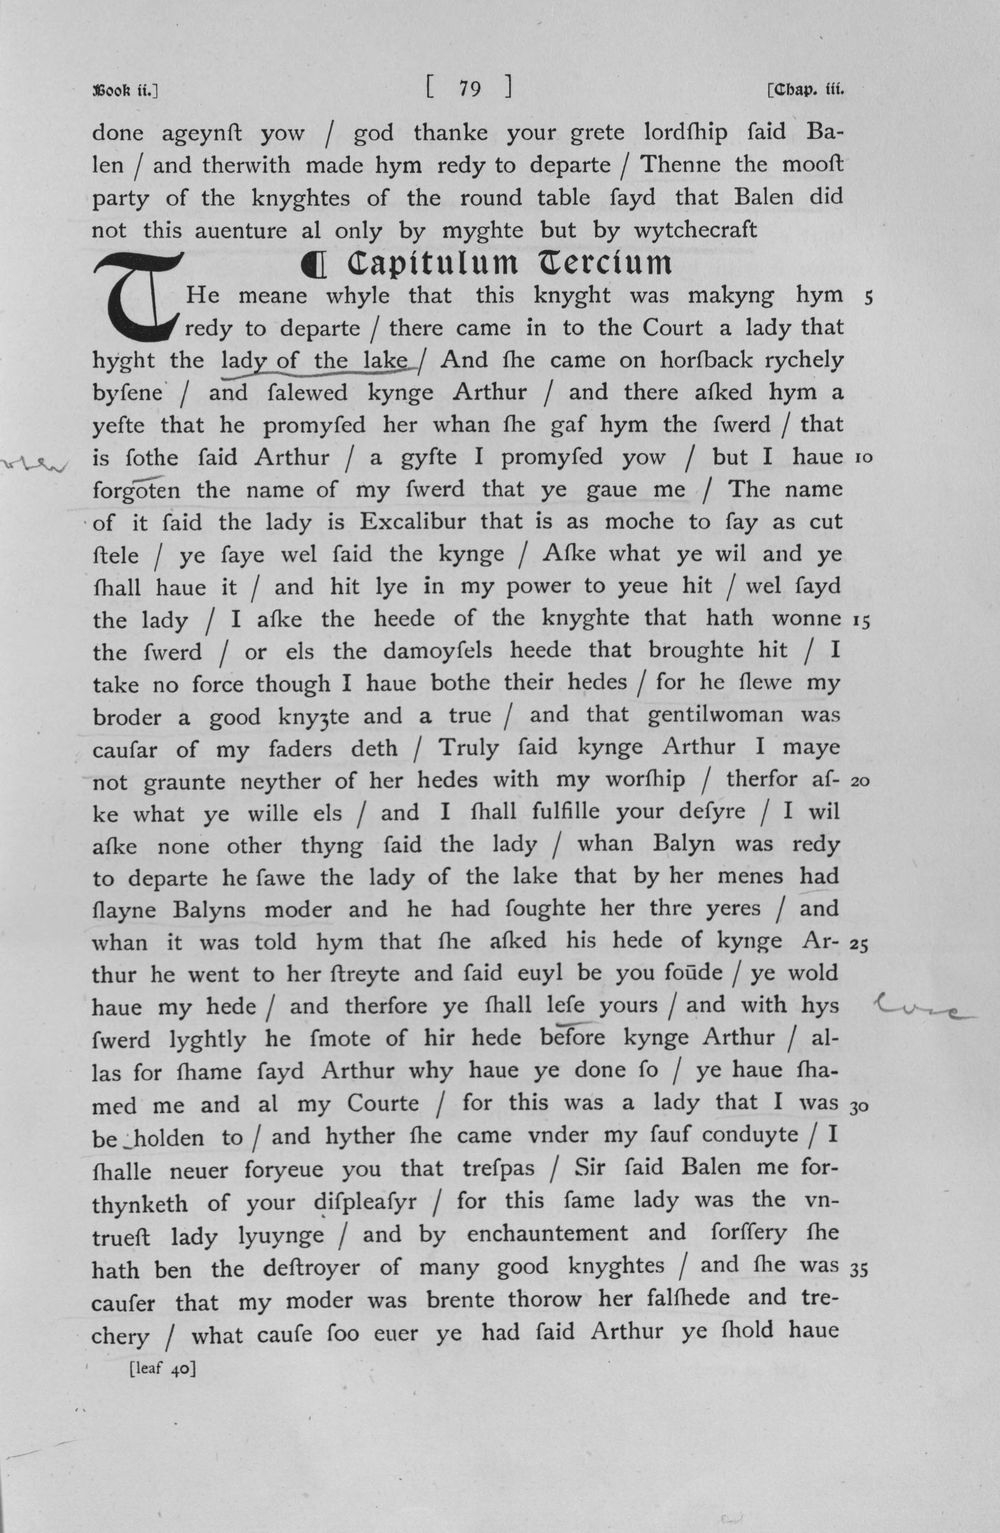 Book ii.] [ 79 ] [Chap. iii.
done ageynſt yow / god thanke your grete lordſhip ſaid Ba-
len / and therwith made hym redy to departe / Thenne the mooſt
party of the knyghtes of the round table ſayd that Balen did
not this auenture al only by myghte but by wytchecraft
¶ Capitulum Tercium
THe meane whyle that this knyght was makyng hym 5
redy to departe / there came in to the Court a lady that
hyght the lady of the lake / And ſhe came on horſback rychely
byſene / and ſalewed kynge Arthur / and there aſked hym a
yefte that he promyſed her whan ſhe gaf hym the ſwerd / that
is ſothe ſaid Arthur / a gyfte I promyſed yow / but I haue 10
forgoten the name of my ſwerd that ye gaue me / The name
of it ſaid the lady is Excalibur that is as moche to ſay as cut
ſtele / ye ſaye wel ſaid the kynge / Aſke what ye wil and ye
ſhall haue it / and hit lye in my power to yeue hit / wel ſayd
the lady / I aſke the heede of the knyghte that hath wonne 15
the ſwerd / or els the damoyſels heede that broughte hit / I
take no force though I haue bothe their hedes / for he ſlewe my
broder a good knyȝte and a true / and that gentilwoman was
cauſar of my faders deth / Truly ſaid kynge Arthur I maye
not graunte neyther of her hedes with my worſhip / therfor aſ- 20
ke what ye wille els / and I ſhall fulfille your deſyre / I wil
aſke none other thyng ſaid the lady / whan Balyn was redy
to departe he ſawe the lady of the lake that by her menes had
ſlayne Balyns moder and he had ſoughte her thre yeres / and
whan it was told hym that ſhe aſked his hede of kynge Ar- 25
thur he went to her ſtreyte and ſaid euyl be you foūde / ye wold
haue my hede / and therfore ye ſhall leſe yours / and with hys
lose
ſwerd lyghtly he ſmote of hir hede before kynge Arthur / al-
las for ſhame ſayd Arthur why haue ye done ſo / ye haue ſha-
med me and al my Courte / for this was a lady that I was 30
be holden to / and hyther ſhe came vnder my ſauf conduyte / I
ſhalle neuer foryeue you that treſpas / Sir ſaid Balen me for-
thynketh of your diſpleaſyr / for this ſame lady was the vn-
trueſt lady lyuynge / and by enchauntement and ſorſſery ſhe
hath ben the deſtroyer of many good knyghtes / and ſhe was 35
cauſer that my moder was brente thorow her falſhede and tre-
chery / what cauſe ſoo euer ye had ſaid Arthur ye ſhold haue
[leaf 40]